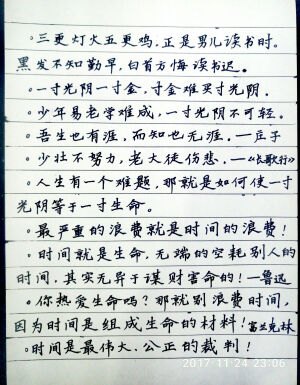 。三更灯火五更鸡,正是男儿读书时。
黑发不知勤早,白首方悔读书迟。
。一寸光阴一寸金,寸金难买寸光阴。
。少年易老学难成,一寸光阴不可轻。
。吾生也有涯,而知也无涯。—庄子
。少壮不努力,老大徒伤悲。—《长歌行》
。人生有一个难题,那就是如何使一寸
光阴等于一寸生命。
。最严重的浪费就是时间的浪费!
。时间就是生命,无端的空耗别人的
时间,其实无异于谋财害命的!—鲁迅
。你热爱生命吗?那就别浪费时间,
因为时间是组成生命的材料!富兰克林
。时间是最伟大、公正的裁判!
2017-11-24 23:06